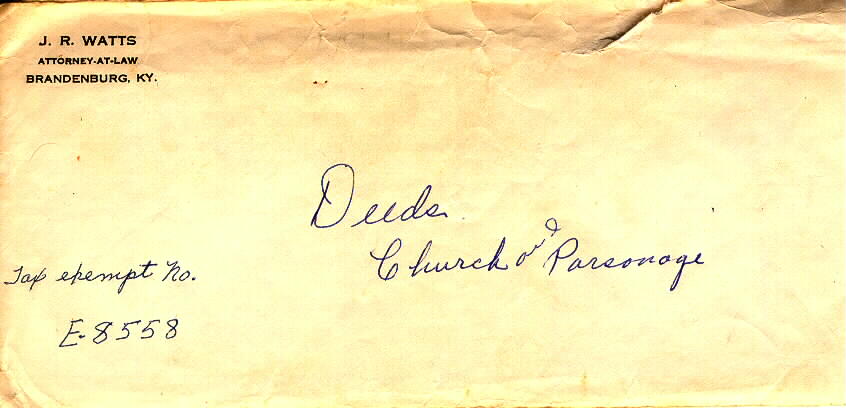 J. R. WATTS
ATTORNEY-AT-LAW
BRANDENBURG, KY.
Deeds
Church and Parsonage
Tax exempt No.
E-8558